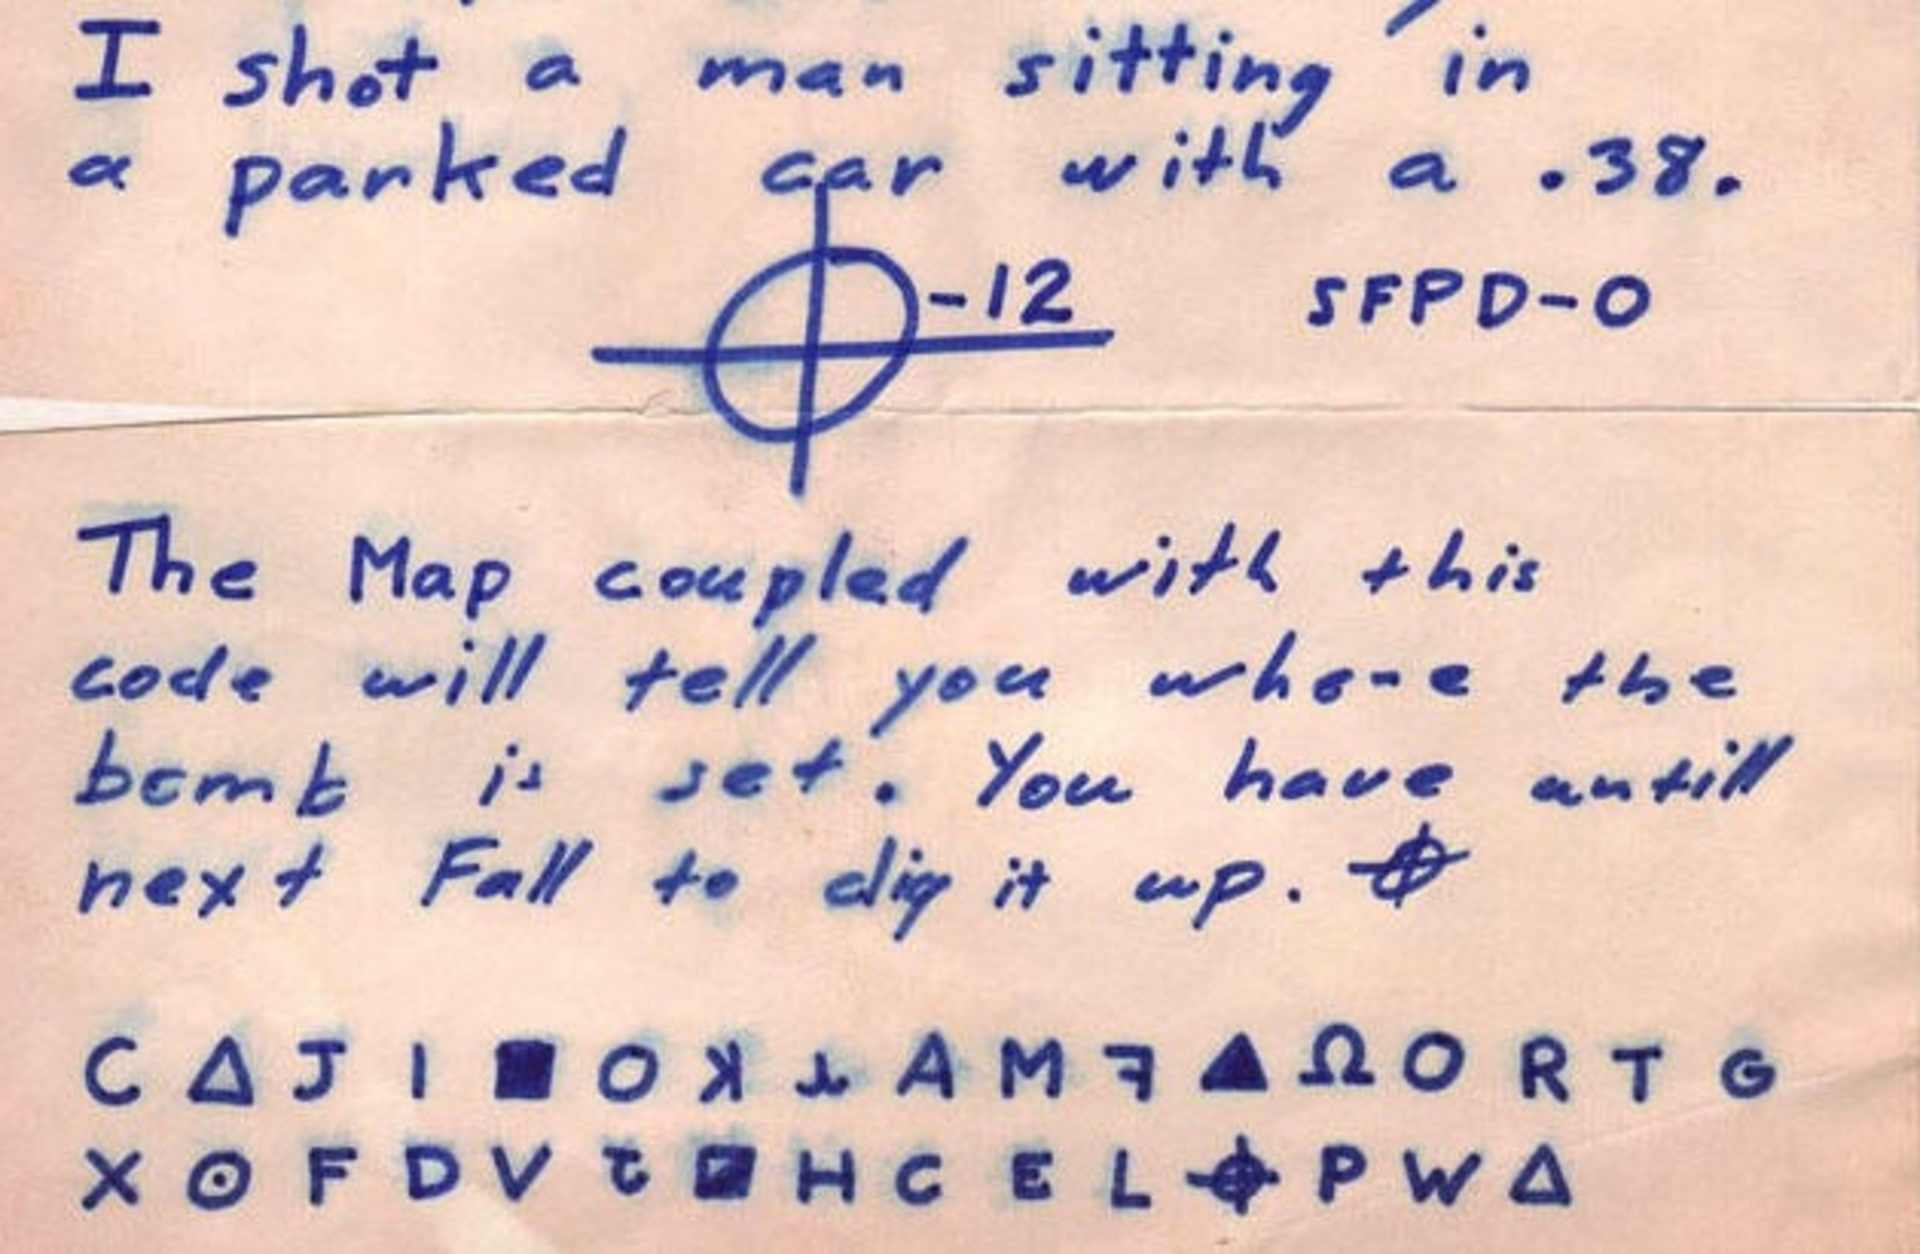 I shot a man sitting in
a parked car with a .38.
⌖-12 SFPD-0
The Map coupled with this
code will tell you who-e the
bomb is set. You have untill
next Fall to dig it up. ⌖
C Δ J I ■ O ꓘ ⅄ A M ꟻ ▲ Ω O R T G
X ⊙ F D V Ʇ ◪ H C E L ⌖ P W Δ